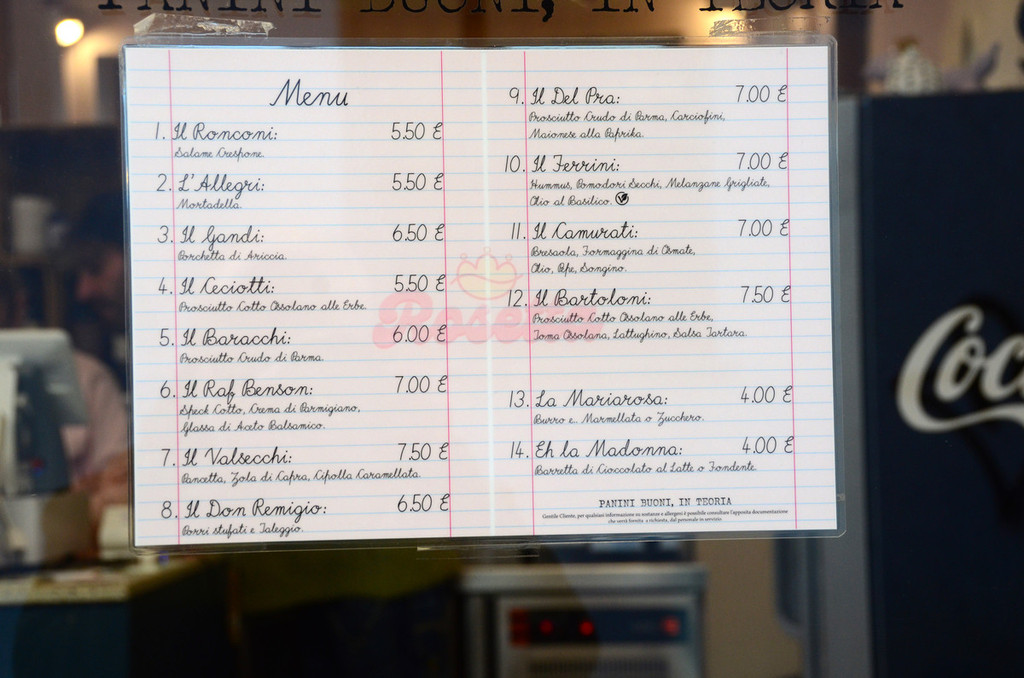 PANINI BUONI, IN TEORIA
Menu
1. Il Ronconi: 5.50 €
Salame Crespone.
2. L'Allegri: 5.50 €
Mortadella.
3. Il Gandi: 6.50 €
Porchetta di Ariccia.
4. Il Ceciotti: 5.50 €
Prosciutto Cotto Ossolano alle Erbe.
5. Il Baracchi: 6.00 €
Prosciutto Crudo di Parma.
6. Il Raf Benson: 7.00 €
Speck Cotto, Crema di Parmigiano,
Glassa di Aceto Balsamico.
7. Il Valsecchi: 7.50 €
Pancetta, Zola di Capra, Cipolla Caramellata.
8. Il Don Remigio: 6.50 €
Porri stufati e Taleggio.
9. Il Del Pra: 7.00 €
Prosciutto Crudo di Parma, Carciofini,
Maionese alla Paprika.
10. Il Ferrini: 7.00 €
Hummus, Pomodori Secchi, Melanzane Grigliate,
Olio al Basilico.
11. Il Camurati: 7.00 €
Bresaola, Formaggina di Osmate,
Olio, Pepe, Songino.
12. Il Bartoloni: 7.50 €
Prosciutto Cotto Ossolano alle Erbe,
Toma Ossolana, Lattughino, Salsa Tartara.
13. La Mariarosa: 4.00 €
Burro e Marmellata o Zucchero.
14. Eh la Madonna: 4.00 €
Barretta di Cioccolato al Latte o Fondente.
PANINI BUONI, IN TEORIA
Gentile Cliente, per qualsiasi informazione su sostanze e allergeni è possibile consultare l'apposita documentazione
che verrà fornita, a richiesta, dal personale in servizio.
Coc